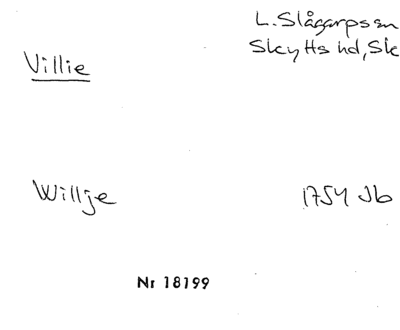 L. Slågarps sn
Skytts hd, Sk
Villie
Willje 1754 Jb
Nr 18199